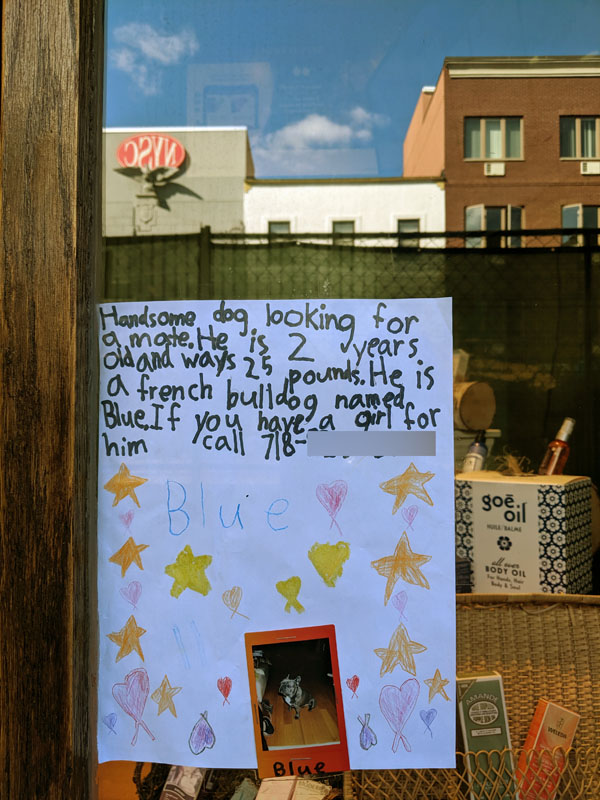 NYSC
Handsome dog looking for
a mate. He is 2 years
old and ways 25 pounds. He is
a french bulldog named
Blue. If you have a girl for
him call 718-
Blue
Blue
goē
oil
HUILE/BALME
all over
BODY OIL
For Hands, Hair
Body & Soul
AMANDE
WELEDA